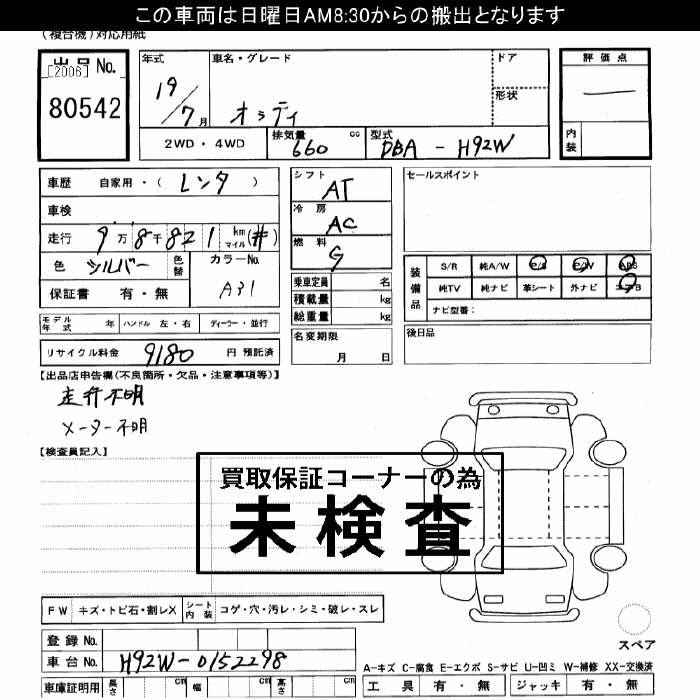 この車両は日曜日AM8:30からの搬出となります
(複合機)対応用紙
出品No.
[2006]
80542
年式
19/7月
車名・グレード
オッティ
ドア
形状
評価点
内装
2WD・4WD
排気量 660 cc
型式 DBA - H92W
車歴 自家用・(レンタ)
車検
走行 9万8千821 km マイル(#)
色 シルバー 色替
カラーNo. A31
保証書 有・無
シフト AT
冷房 AC
燃料 G
乗車定員 名
積載量 kg
総重量 kg
セールスポイント
装備品
S/R 純A/W P/S P/W ABS
純TV 純ナビ 革シート 外ナビ エアB
ナビ型番:
モデル年式 年 ハンドル 左・右 ディーラー・並行
名変期限
月 日
後日品
リサイクル料金 9180 円 預託済
【出品店申告欄(不良箇所・欠品・注意事項等)】
走行不明
メーター不明
【検査員記入】
買取保証コーナーの為
未検査
FW キズ・トビ石・割レX シート内装 コゲ・穴・汚レ・シミ・破レ・スレ
スペア
登録No.
車台No. H92W-0152298
A-キズ C-腐食 E-エクボ S-サビ U-凹ミ W-補修 XX-交換済
車庫証明用 長さ cm 幅 cm 高さ cm
工具 有・無 ジャッキ 有・無